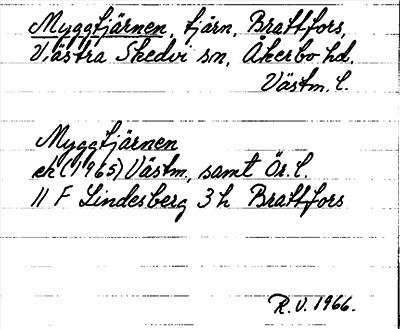 Myggtjärnen, tjärn, Brattfors,
Västra Skedvi sn, Åkerbo hd.
Västm. l.
Myggtjärnen
ek (1965) Västm, samt Ör. l.
11 F Lindesberg 3 h Brattfors
R.V. 1966.